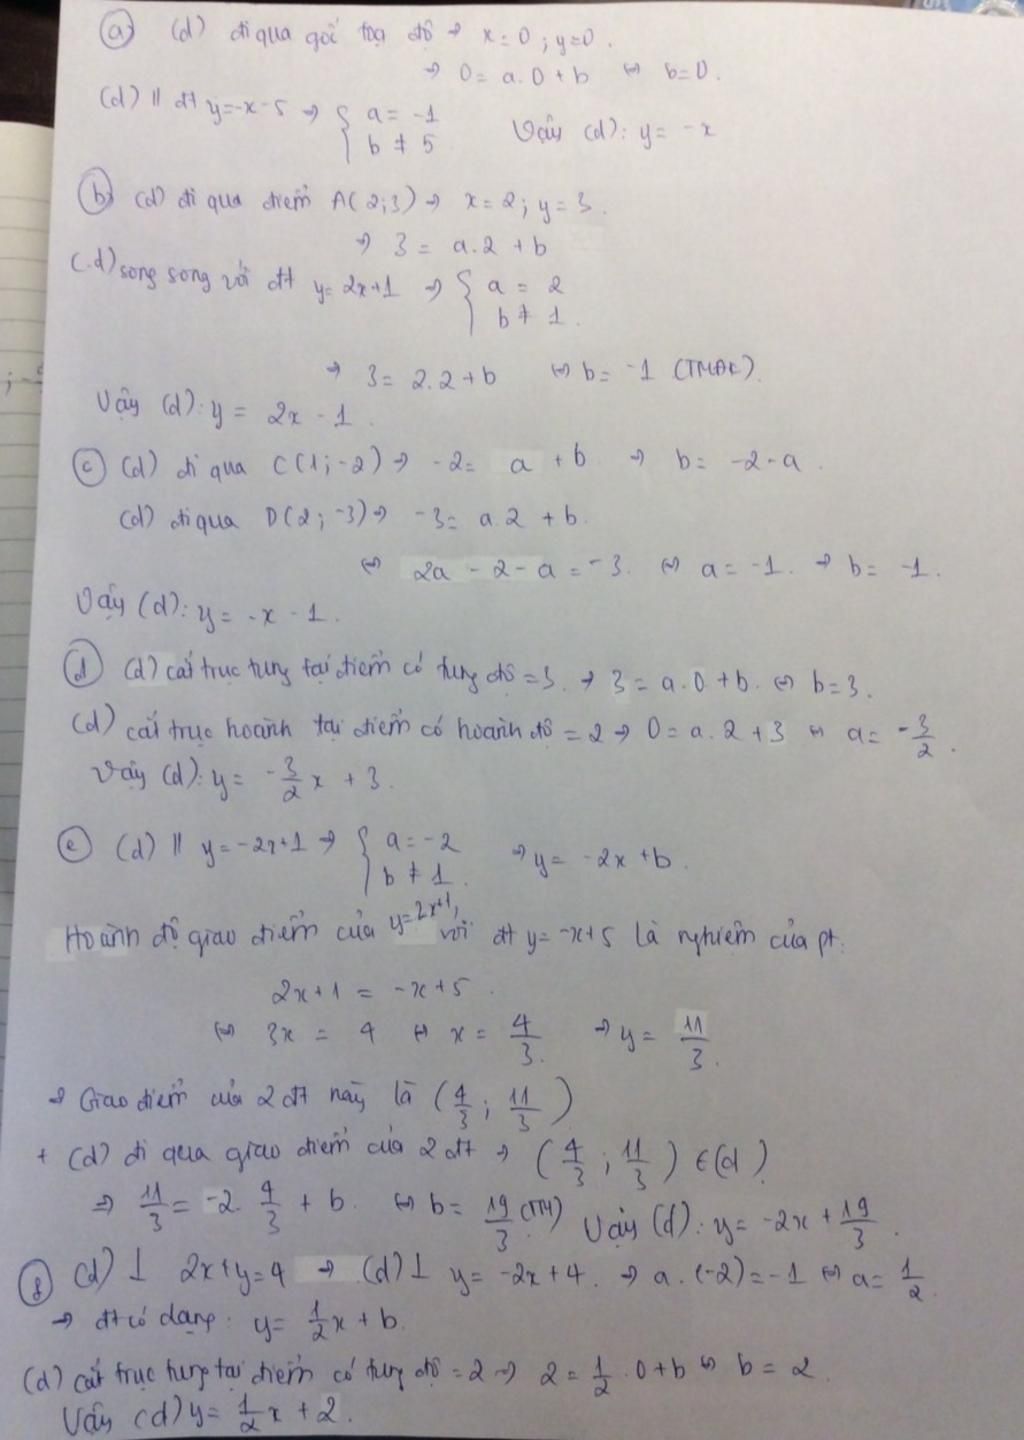 a) (d) đi qua gốc tọa độ → x=0; y=0.
→ 0= a.0+b ⇔ b=0.
(d) // đt y=-x-5 → { a= -1
b ≠ 5 Vậy (d): y= -x
b) (d) đi qua điểm A(2;3) → x=2; y=3.
→ 3= a.2+b
(d) song song với đt y=2x+1 → { a= 2
b ≠ 1.
→ 3= 2.2+b ⇔ b= -1 (TMĐK).
Vậy (d): y= 2x-1.
c) (d) đi qua C(1;-2) → -2= a+b → b= -2-a.
(d) đi qua D(2;-3) → -3= a.2+b.
⇔ 2a-2-a=-3. ⇔ a=-1. → b= -1.
Vậy (d): y= -x-1.
d) (d) cắt trục tung tại điểm có tung độ =3. → 3= a.0+b. ⇔ b=3.
(d) cắt trục hoành tại điểm có hoành độ =2 → 0= a.2+3 ⇔ a= -3/2.
Vậy (d): y= -3/2x+3.
e) (d) // y=-2x+1 → { a=-2
b ≠ 1. → y= -2x+b.
Hoành độ giao điểm của y=2x+1, với đt y=-x+5 là nghiệm của pt:
2x+1 = -x+5.
⇔ 3x= 4 ⇔ x= 4/3. → y= 11/3.
→ Giao điểm của 2 đt này là (4/3; 11/3)
+ (d) đi qua giao điểm của 2 đt → (4/3; 11/3) ∈(d)
⇒ 11/3= -2. 4/3 + b. ⇔ b= 19/3 (TM) Vậy (d): y= -2x+19/3.
f) (d) ⊥ 2x+y=4 → (d) ⊥ y= -2x+4. → a.(-2)=-1 ⇔ a= 1/2.
→ đt có dạng: y= 1/2x+b.
(d) cắt trục tung tại điểm có tung độ =2 → 2= 1/2.0+b ⇔ b= 2
Vậy (d) y= 1/2x+2.